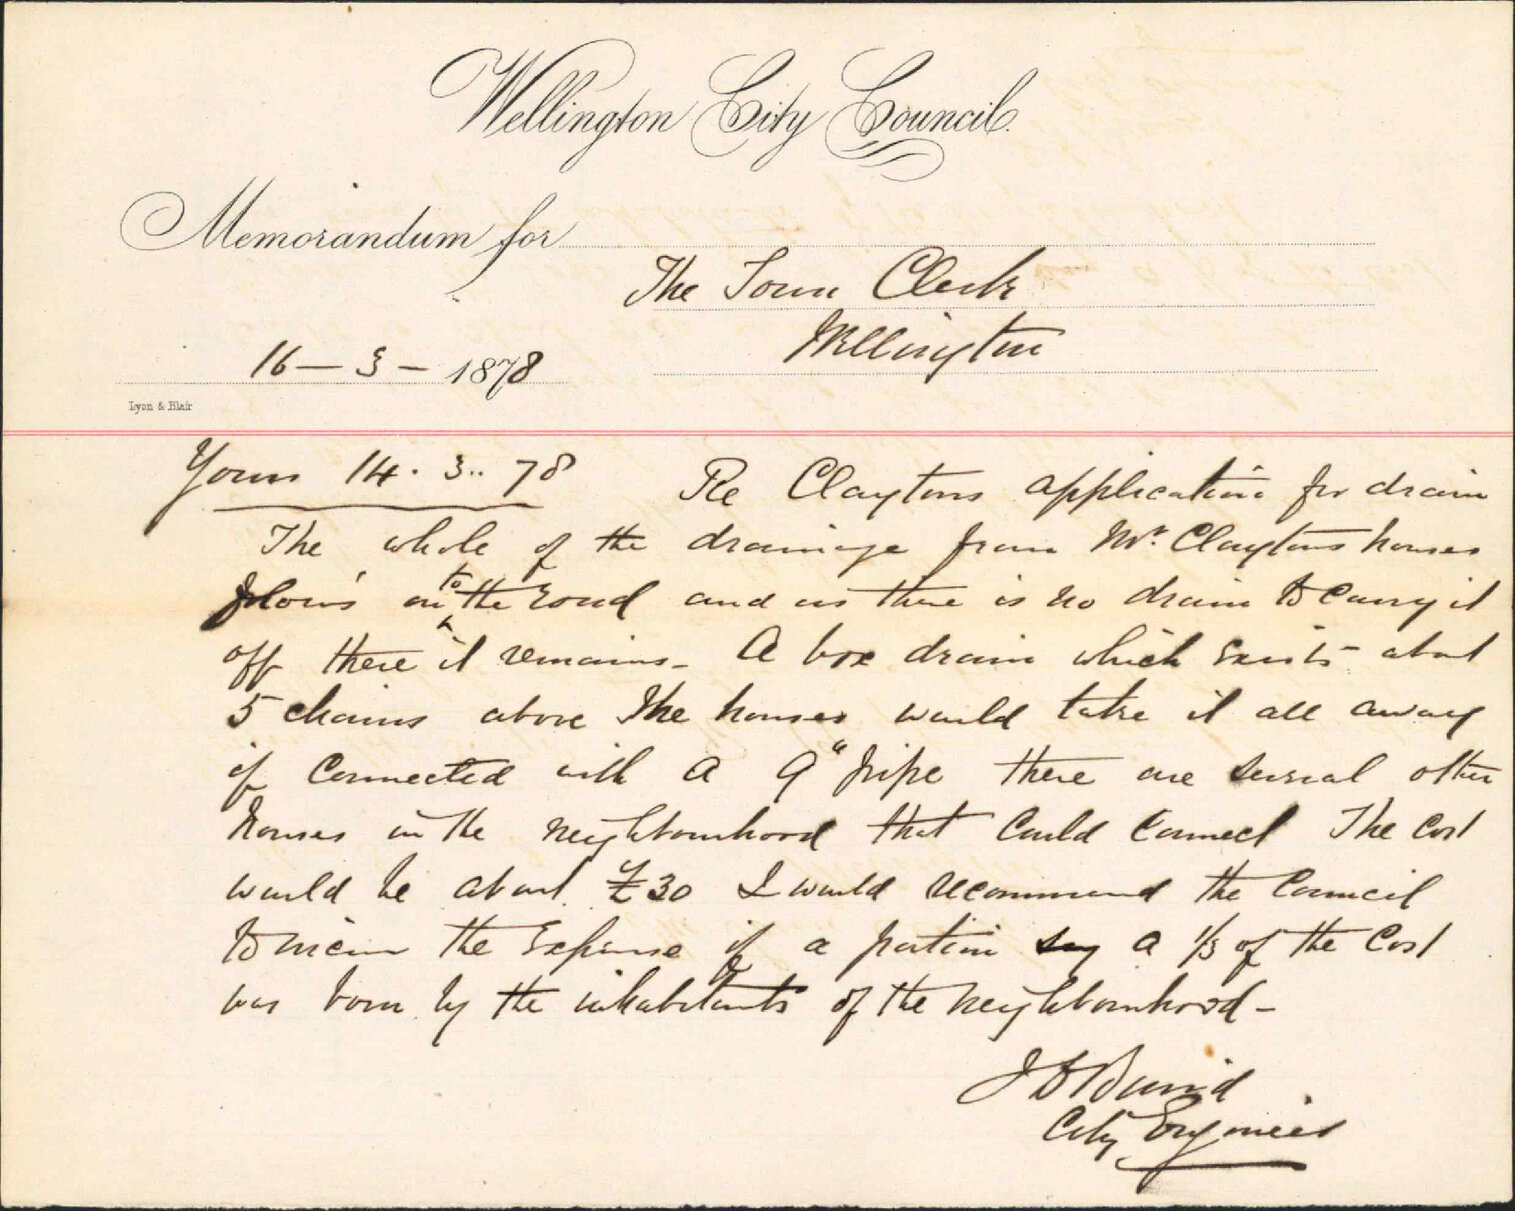 Wellington City Council.
Memorandum for
The Town Clerk
Wellington
16 - 3 - 1878
Lyon & Blair
Yours 14. 3.. 78 Re Claytons application for drain
The whole of the drainage from Mr. Claytons houses
flows on to the road and as there is no drain to carry it
off there it remains - A box drain which exists about
5 chains above the houses would take it all away
if connected with a 9" pipe there are several other
houses in the neighbourhood that could connect The cost
would be about £30 I would recommend the Council
to incur the expense if a portion say a 1/3 of the cost
was born by the inhabitants of the neighbourhood -
J D Baird
City Engineer